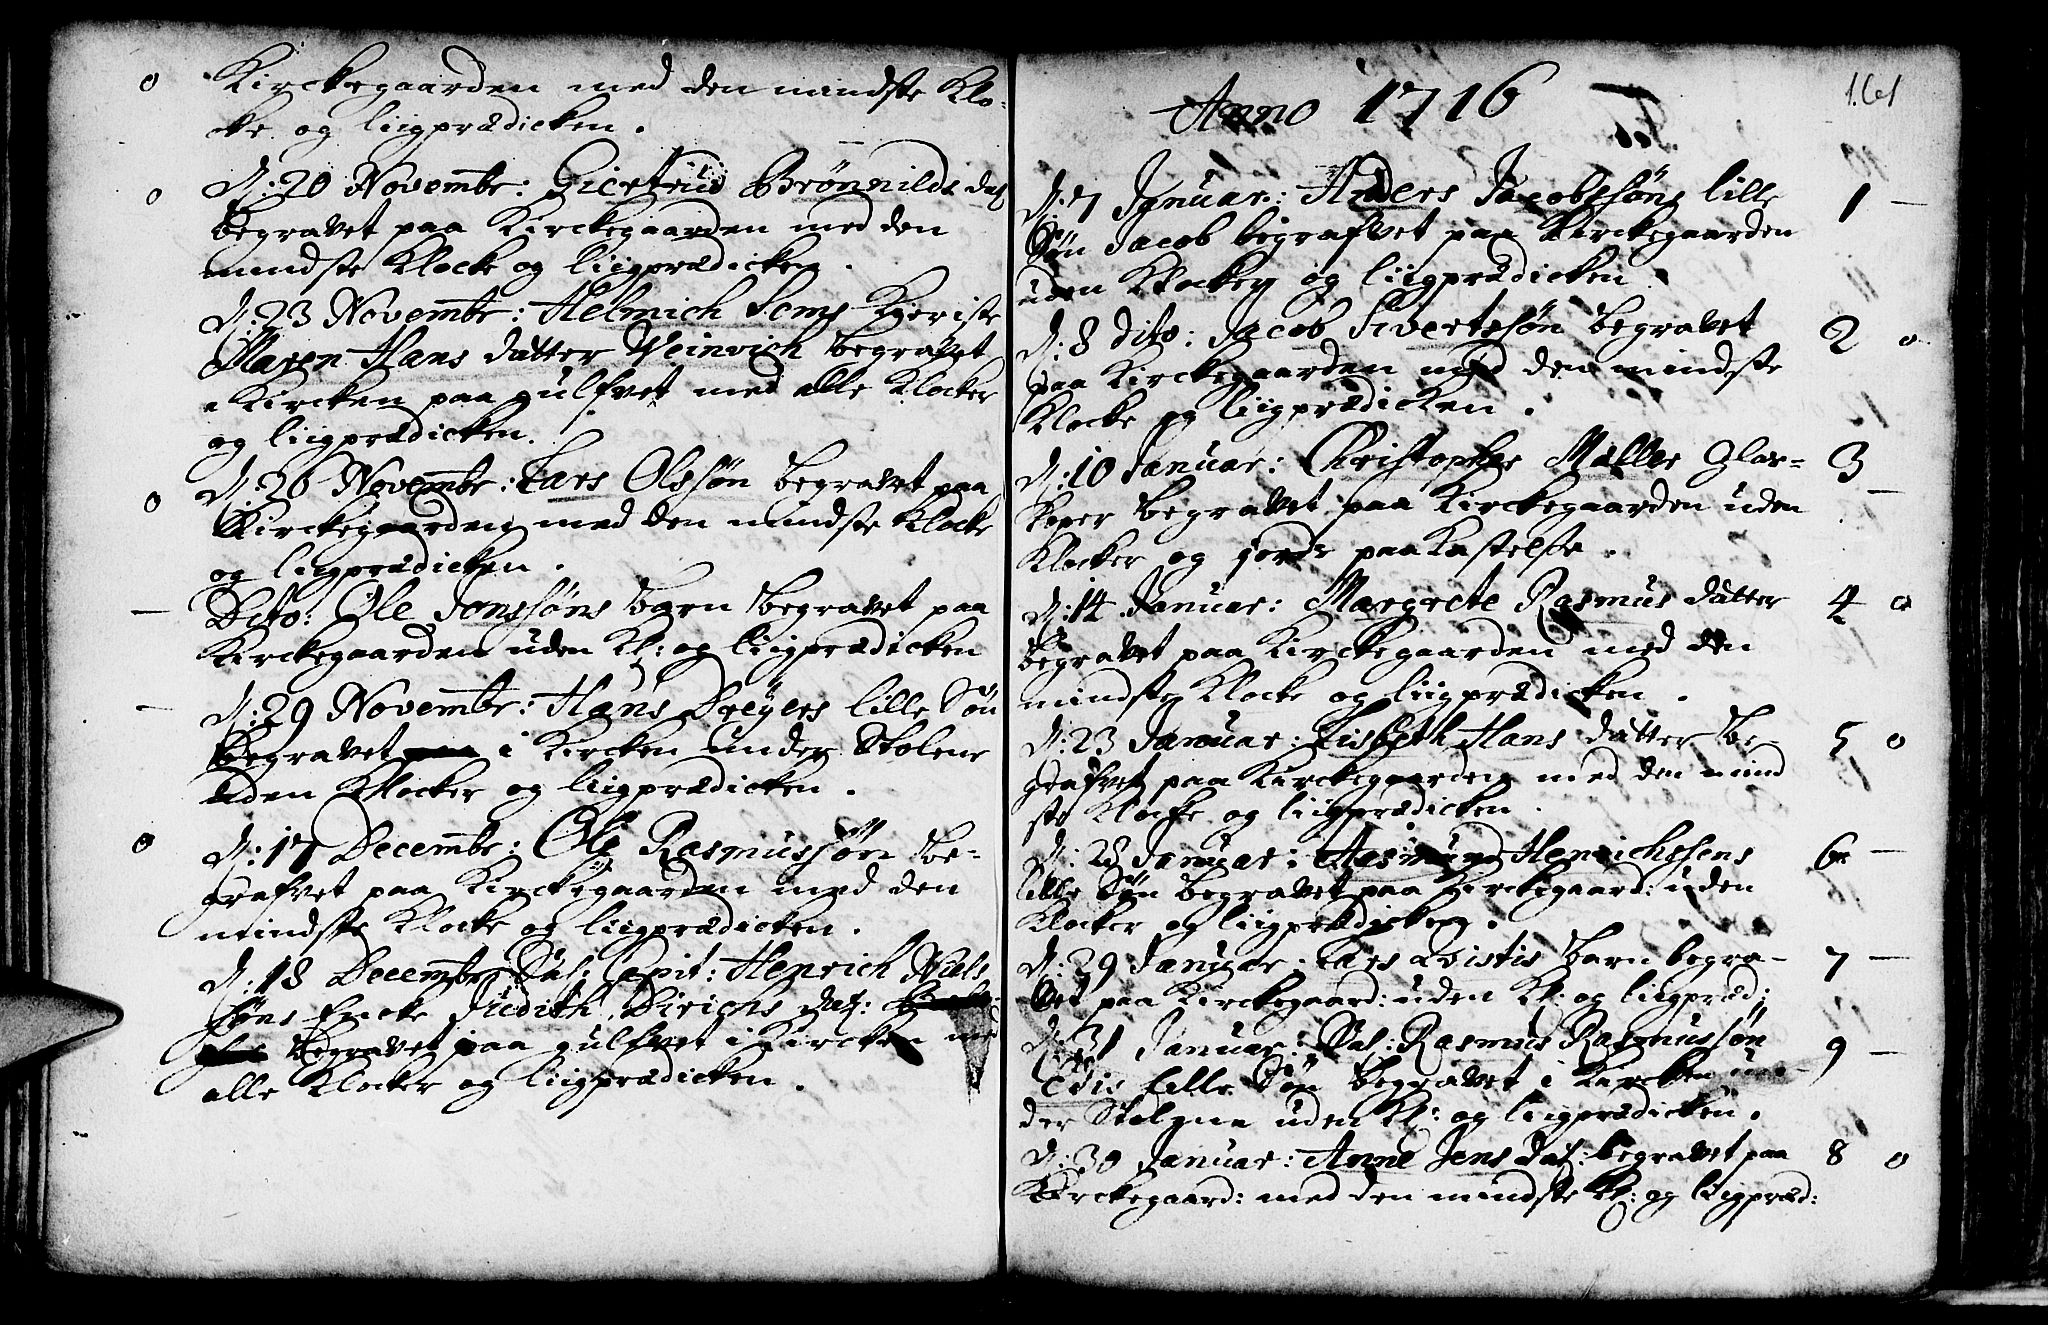 o Kirckegaarden med den mindste Klo-
cke og liigprædicken.
o D: 20 Novembr: Giertrud Brønnilds dat
begravet paa Kirckegaarden med den
mindste Klocke og liigprædicken.
D: 23 Novembr: Helmich Soms Kieriste
Maren Hans datter Weinvich begravet
i Kircken paa gulfvet med alle Klocker
og liigprædicken.
o D: 26 Novembr: Lars Olssøn begravet paa
Kirckegaarden med den mindste Klocke
og liigprædicken.
— Dito: Ole Jonssøns barn begravet paa
Kirckegaarden uden Kl: og liigprædicken
— D: 29 Novembr: Hans Dreyers lille Søn
begravet paa i Kircken under Stolene
uden Klocker og liigprædicken.
o D: 17 Decembr: Ole Rasmussøn be-
grafvet paa Kirckegaarden med den
mindste Klocke og liigprædicken.
D: 18 Decembr Sal: Capit: Henrich Niels
søns Encke Judith Dirichs dat:
begravet paa gulfvet i Kircken med
alle Klocker og liigprædicken.
161
Anno 1716
D: 7 Januar: Anders Jacobssøns lille 1 —
Søn Jacob begrafvet paa Kirckegaarden
uden Klocker og liigprædicken.
D: 8 dito: Jacob Sivertssøn begravet 2 o
paa Kirckegaarden med den mindste
Klocke og liigprædicken.
D: 10 Januar: Christopher Møller Glar- 3 —
begravet paa Kirckegaarden uden
Klocker og jords paakastelse.
D: 14 Januar: Margrete Rasmus datter 4 o
begravet paa Kirckegaarden med den
mindste Klocke og liigprædicken.
D: 23 Januar: Lisbeth Hans datter be- 5 o
grafvet paa Kirckegaarden med den mind
ste Klocke og liigprædicken.
D: 28 Januar: Aasmund Henrichssens 6 —
lille Søn begravet paa Kirckegaard: uden
Klocker og liigprædicken.
D: 29 Januar: Lars barn begra- 7 —
vet paa Kirckegaard: uden Kl: og liigpræd:
D: 31 Januar: Sal: Rasmus Rasmussøn 9 —
lille Søn begravet i Kircken un-
der Stolene uden Kl: og liigprædicken.
D: 30 Januar: Anne Jens dat: begravet paa 8 o
Kirckegaard: med den mindste Kl: og liigpræd: